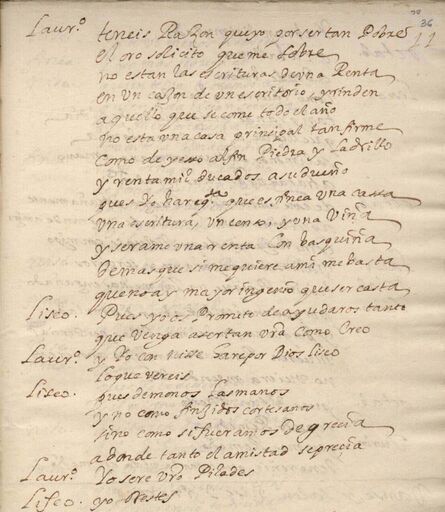 70
36
11
Laurº. teneis Razon que yo por ser tan Pobre
el oro solicito que me sobre
no estan las escrituras de una Renta
en un cajon de un escritorio, y rinden
aquello que se come todo el año
no esta una casa principal tan firme
como de yesso al fin Piedra y Ladrillo
y renta mil ducados a su dueño
pues yo hare qta que es finea una cassa
una escritura, un censo, y una Viña
y serame una renta con basquiña
demas que si me quiere a mi me basta
que no ay mayor ingenio que ser casta
Liseo. Pues yo os Prometo de ayudaros tanto
que Venga a ser tan vra Como Creo
Laurº. y Yo con Nisse hare por Dios Liseo
lo que vereis
Liseo. pues demonos Las manos
y no como finxidos cortesanos
sino como si fueramos de grecia
adonde tanto el amistad se precia
Laurº. Yo sere vro Pilades
Liseo. yo Orestes